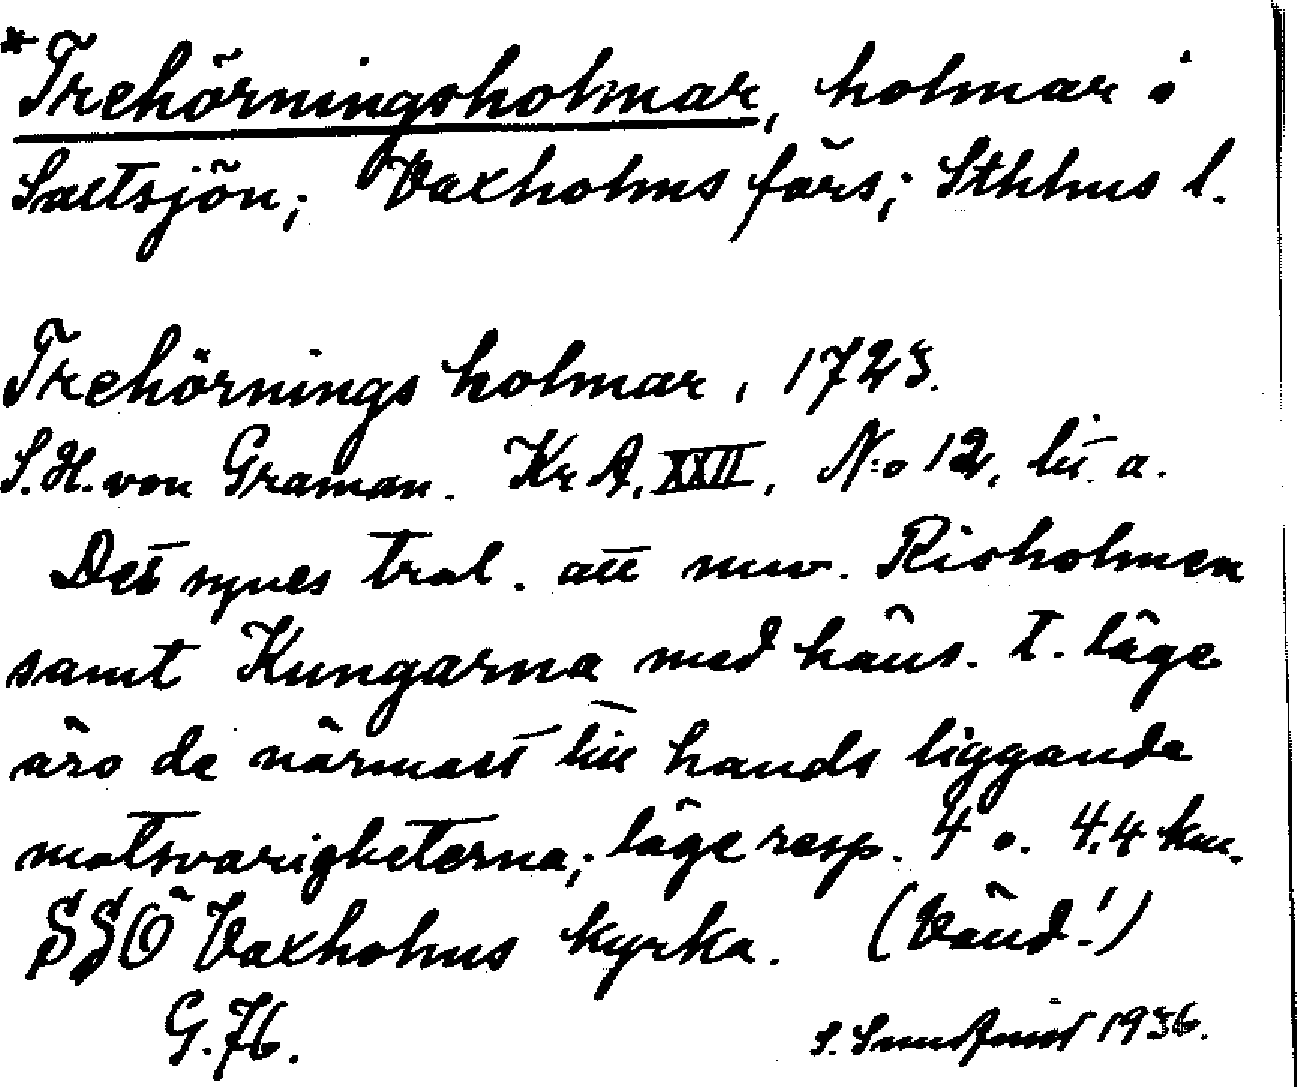 *Trehörningsholmar, holmar i
Saltsjön; Vaxholms förs; Sthlms l.
Trehörnings holmar, 1723.
S.H. von Graman. Kr A, XXII, N:o 12, lit a.
Det synes trol. att nuv. Risholmen
samt Kungarna med häns. t. läge
äro de närmast till hands liggande
motsvarigheterna; läge resp. 4 o. 4,4 km.
SSÖ Vaxholms kyrka. (Vänd!)
G.76.
S. 1936.